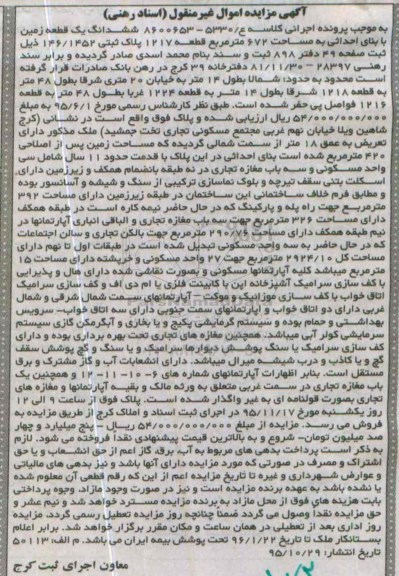 آگهی مزایده اموال غیرمنقول (اسناد رهنی)
به موجب پرونده اجرائی کلاسه ۸۶۰۰۶۵۳ - ۵۳۳۰/ع ششدانگ یک قطعه زمین
با بنای احداثی به مساحت ۶۷۲ مترمربع قطعه ۱۲۱۷ پلاک ثبتی ۱۴۶/۱۴۵۲ ذیل
ثبت صفحه ۴۹ دفتر ۸۹۸ ثبت و سند بنام محمد اسدی صادر گردیده و برابر سند
رهنی ۲۸۳۹۷ - ۸۱/۱۱/۳۰ دفترخانه ۳۹ کرج در رهن بانک صادرات قرار گرفته
است محدود به حدود: شمالا بطول ۱۴ متر به خیابان ۲۰ متری شرقا بطول ۴۸ متر
به قطعه ۱۲۱۸ شرقا بطول ۱۴ متر به قطعه ۱۲۲۴ غربا بطول ۴۸ متر به قطعه
۱۲۱۶ فواصل پی حفر شده است. طبق نظر کارشناس رسمی مورخ ۹۵/۶/۱ به مبلغ
۵۴/۰۰۰/۰۰۰/۰۰۰ ریال ارزیابی شده و پلاک فوق واقع است در نشانی (کرج
شاهین ویلا خیابان نهم غربی مجتمع مسکونی تجاری تخت جمشید) ملک مذکور دارای
تعریض به عمق ۱۸ متر از سمت شمالی گردیده که مساحت زمین پس از اصلاحی
۴۲۰ مترمربع شده است بنای احداثی در این پلاک با قدمت حدود ۱۱ سال شامل سی
واحد مسکونی و سه باب مغازه تجاری در نه طبقه بانضمام همکف و زیرزمین دارای
اسکلت بتنی سقف تیرچه و بلوک نماسازی ترکیبی از سنگ و شیشه و آسانسور بوده
و مطابق فرم خلاف ساختمانی این ساختمان در طبقه زیرزمین دارای مساحت ۳۹۲
مترمربع جهت راه پله و پارکینگ که در حال حاضر نیمه کاره است در طبقه همکف
دارای مساحت ۳۲۶ مترمربع جهت سه باب مغازه تجاری و الباقی انباری آپارتمانها در
نیم طبقه همکف دارای مساحت ۲۹۰/۷۶ مترمربع جهت بالکن تجاری و سالن اجتماعات
که در حال حاضر به سه واحد مسکونی تبدیل شده است در طبقات اول تا نهم دارای
مساحت کل ۲۹۲۴/۱۰ مترمربع جهت ۲۷ واحد مسکونی و خرپشته دارای مساحت ۱۵
مترمربع میباشد کلیه آپارتمانها مسکونی و بصورت نقاشی شده دارای هال و پذیرایی
با کف سازی سرامیک آشپزخانه اپن با کابینت فلزی یا ام دی اف و کف سازی سرامیک
اتاق خواب با کف سازی موزائیک و موکت - آپارتمانهای سمت شمال شرقی و شمال
غربی دارای دو اتاق خواب و آپارتمانهای سمت جنوبی دارای سه اتاق خواب- سرویس
بهداشتی و حمام بوده و سیستم گرمایشی پکیج و یا بخاری و آبگرمکن گازی سیستم
سرمایشی کولر آبی میباشند. همچنین مغازه های تجاری تحت بهره برداری بوده و دارای
کف سازی سرامیک و یا سنگ پوشش دیوارها سرامیک و یا سنگ و گچ پوشش سقف
گچ و یا کاذب و درب شیشه میرال میباشد. دارای انشعابات آب و گاز مشترک و برق
مستقل است. بنابر اظهارات آپارتمانهای شماره های ۶-۱۰-۱۱-۱۲ و همچنین یک
باب مغازه تجاری در سمت غربی متعلق به ورثه مالک و بقیه آپارتمانها و مغازه های
تجاری بصورت قولنامه ای به غیر واگذار شده است. پلاک فوق از ساعت ۹ الی ۱۲
روز یکشنبه مورخ ۹۵/۱۱/۱۷ در اجرای ثبت اسناد و املاک کرج از طریق مزایده به
فروش می رسد. مزایده از مبلغ ۵۴/۰۰۰/۰۰۰/۰۰۰ ریال - پنج میلیارد و چهار
صد میلیون تومان- شروع و به بالاترین قیمت پیشنهادی نقدا فروخته می شود. لازم
به ذکر است پرداخت بدهی های مربوط به آب، برق، گاز اعم از حق انشعاب و یا حق
اشتراک و مصرف در صورتی که مورد مزایده دارای آنها باشد و نیز بدهی های مالیاتی
و عوارض شهرداری و غیره تا تاریخ مزایده اعم از این که رقم قطعی آن معلوم شده
یا نشده باشد به عهده برنده مزایده است و نیز در صورت وجود مازاد، وجوه پرداختی
بابت هزینه های فوق از محل مازاد به برنده مزایده مسترد خواهد شد و نیم عشر و
حق مزایده نقدا وصول می گردد ضمناً چنانچه روز مزایده تعطیل رسمی گردد، مزایده
روز اداری بعد از تعطیلی در همان ساعت و مکان مقرر برگزار خواهد شد. برابر اعلام
بستانکار ملک تا تاریخ ۹۶/۱/۲۲ تحت پوشش بیمه ایران می باشد. م الف: ۵۰۱۱۳
تاریخ انتشار: ۹۵/۱۰/۲۹
معاون اجرای ثبت کرج